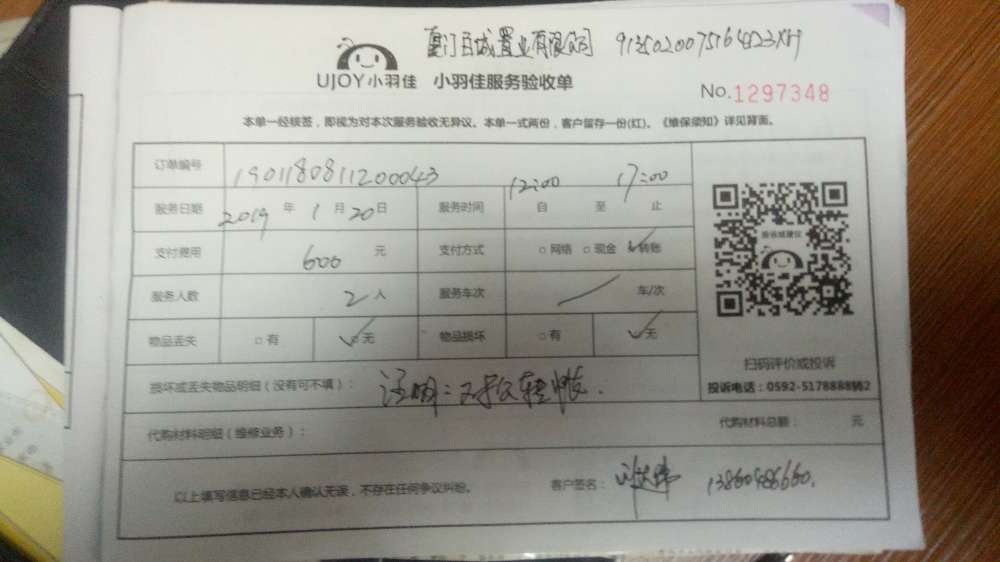 厦门百城置业有限公司 9135020075164223XH
UJOY小羽佳 小羽佳服务验收单
No.1297348
本单一经核签，即视为对本次服务验收无异议。本单一式两份，客户留存一份(红)。《维保须知》详见背面。
订单编号 190118081120043
服务日期 2019 年 1 月 20 日 服务时间 12:00 自 至 17:00 止
支付费用 600 元 支付方式 □网络 □现金 ☑转账
服务人数 2 人 服务车次 / 车/次
物品丢失 □有 ☑无 物品损坏 □有 ☑无
扫码评价或投诉
投诉电话：0592-5178888转2
损坏或丢失物品明细（没有可不填）： 注明：对公转账.
代购材料明细（维修业务）： 代购材料总额： 元
以上填写信息已经本人确认无误，不存在任何争议纠纷。 客户签名：